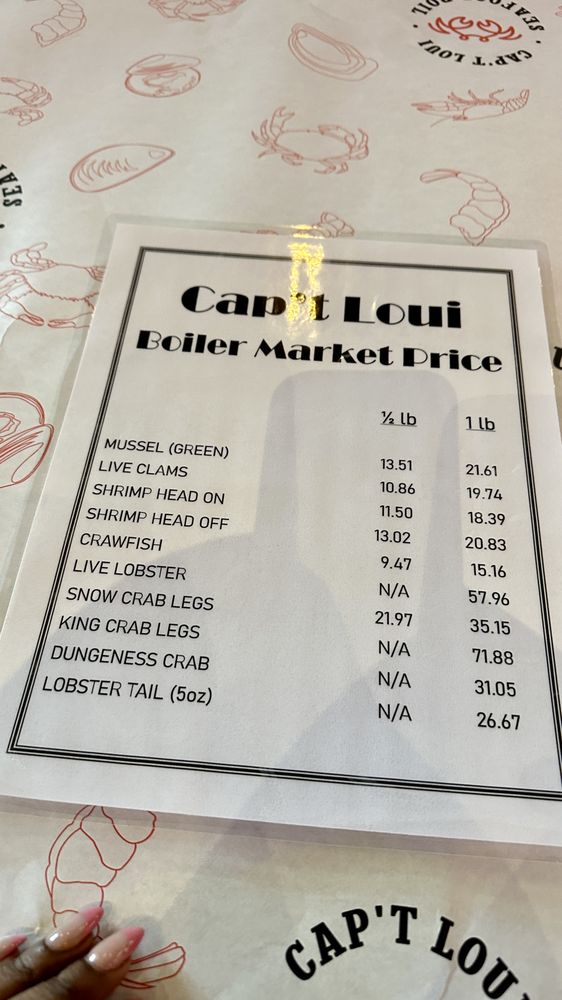 SEAFOOD BOIL
CAP'T LOUI
SEA
Cap't Loui
Boiler Market Price
½ lb 1 lb
MUSSEL (GREEN) 13.51 21.61
LIVE CLAMS 10.86 19.74
SHRIMP HEAD ON 11.50 18.39
SHRIMP HEAD OFF 13.02 20.83
CRAWFISH 9.47 15.16
LIVE LOBSTER N/A 57.96
SNOW CRAB LEGS 21.97 35.15
KING CRAB LEGS N/A 71.88
DUNGENESS CRAB N/A 31.05
LOBSTER TAIL (5oz) N/A 26.67
CAP'T LOU